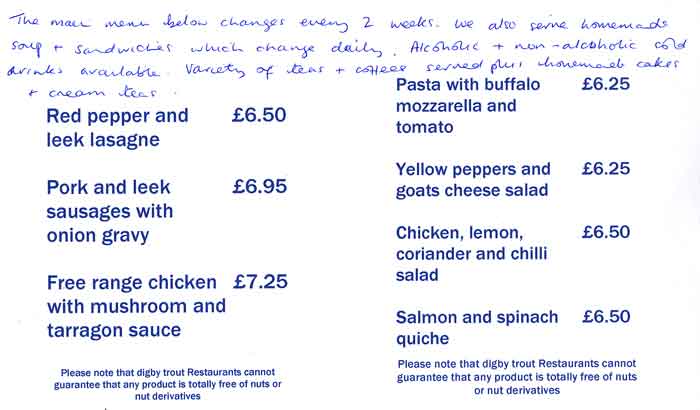 The main menu below changes every 2 weeks. We also serve homemade
soup + sandwiches which change daily. Alcoholic + non-alcoholic cold
drinks available. Variety of teas + coffees served plus homemade cakes
+ cream teas.
Red pepper and £6.50
leek lasagne
Pork and leek £6.95
sausages with
onion gravy
Free range chicken £7.25
with mushroom and
tarragon sauce
Please note that digby trout Restaurants cannot
guarantee that any product is totally free of nuts or
nut derivatives
Pasta with buffalo £6.25
mozzarella and
tomato
Yellow peppers and £6.25
goats cheese salad
Chicken, lemon, £6.50
coriander and chilli
salad
Salmon and spinach £6.50
quiche
Please note that digby trout Restaurants cannot
guarantee that any product is totally free of nuts
or nut derivatives